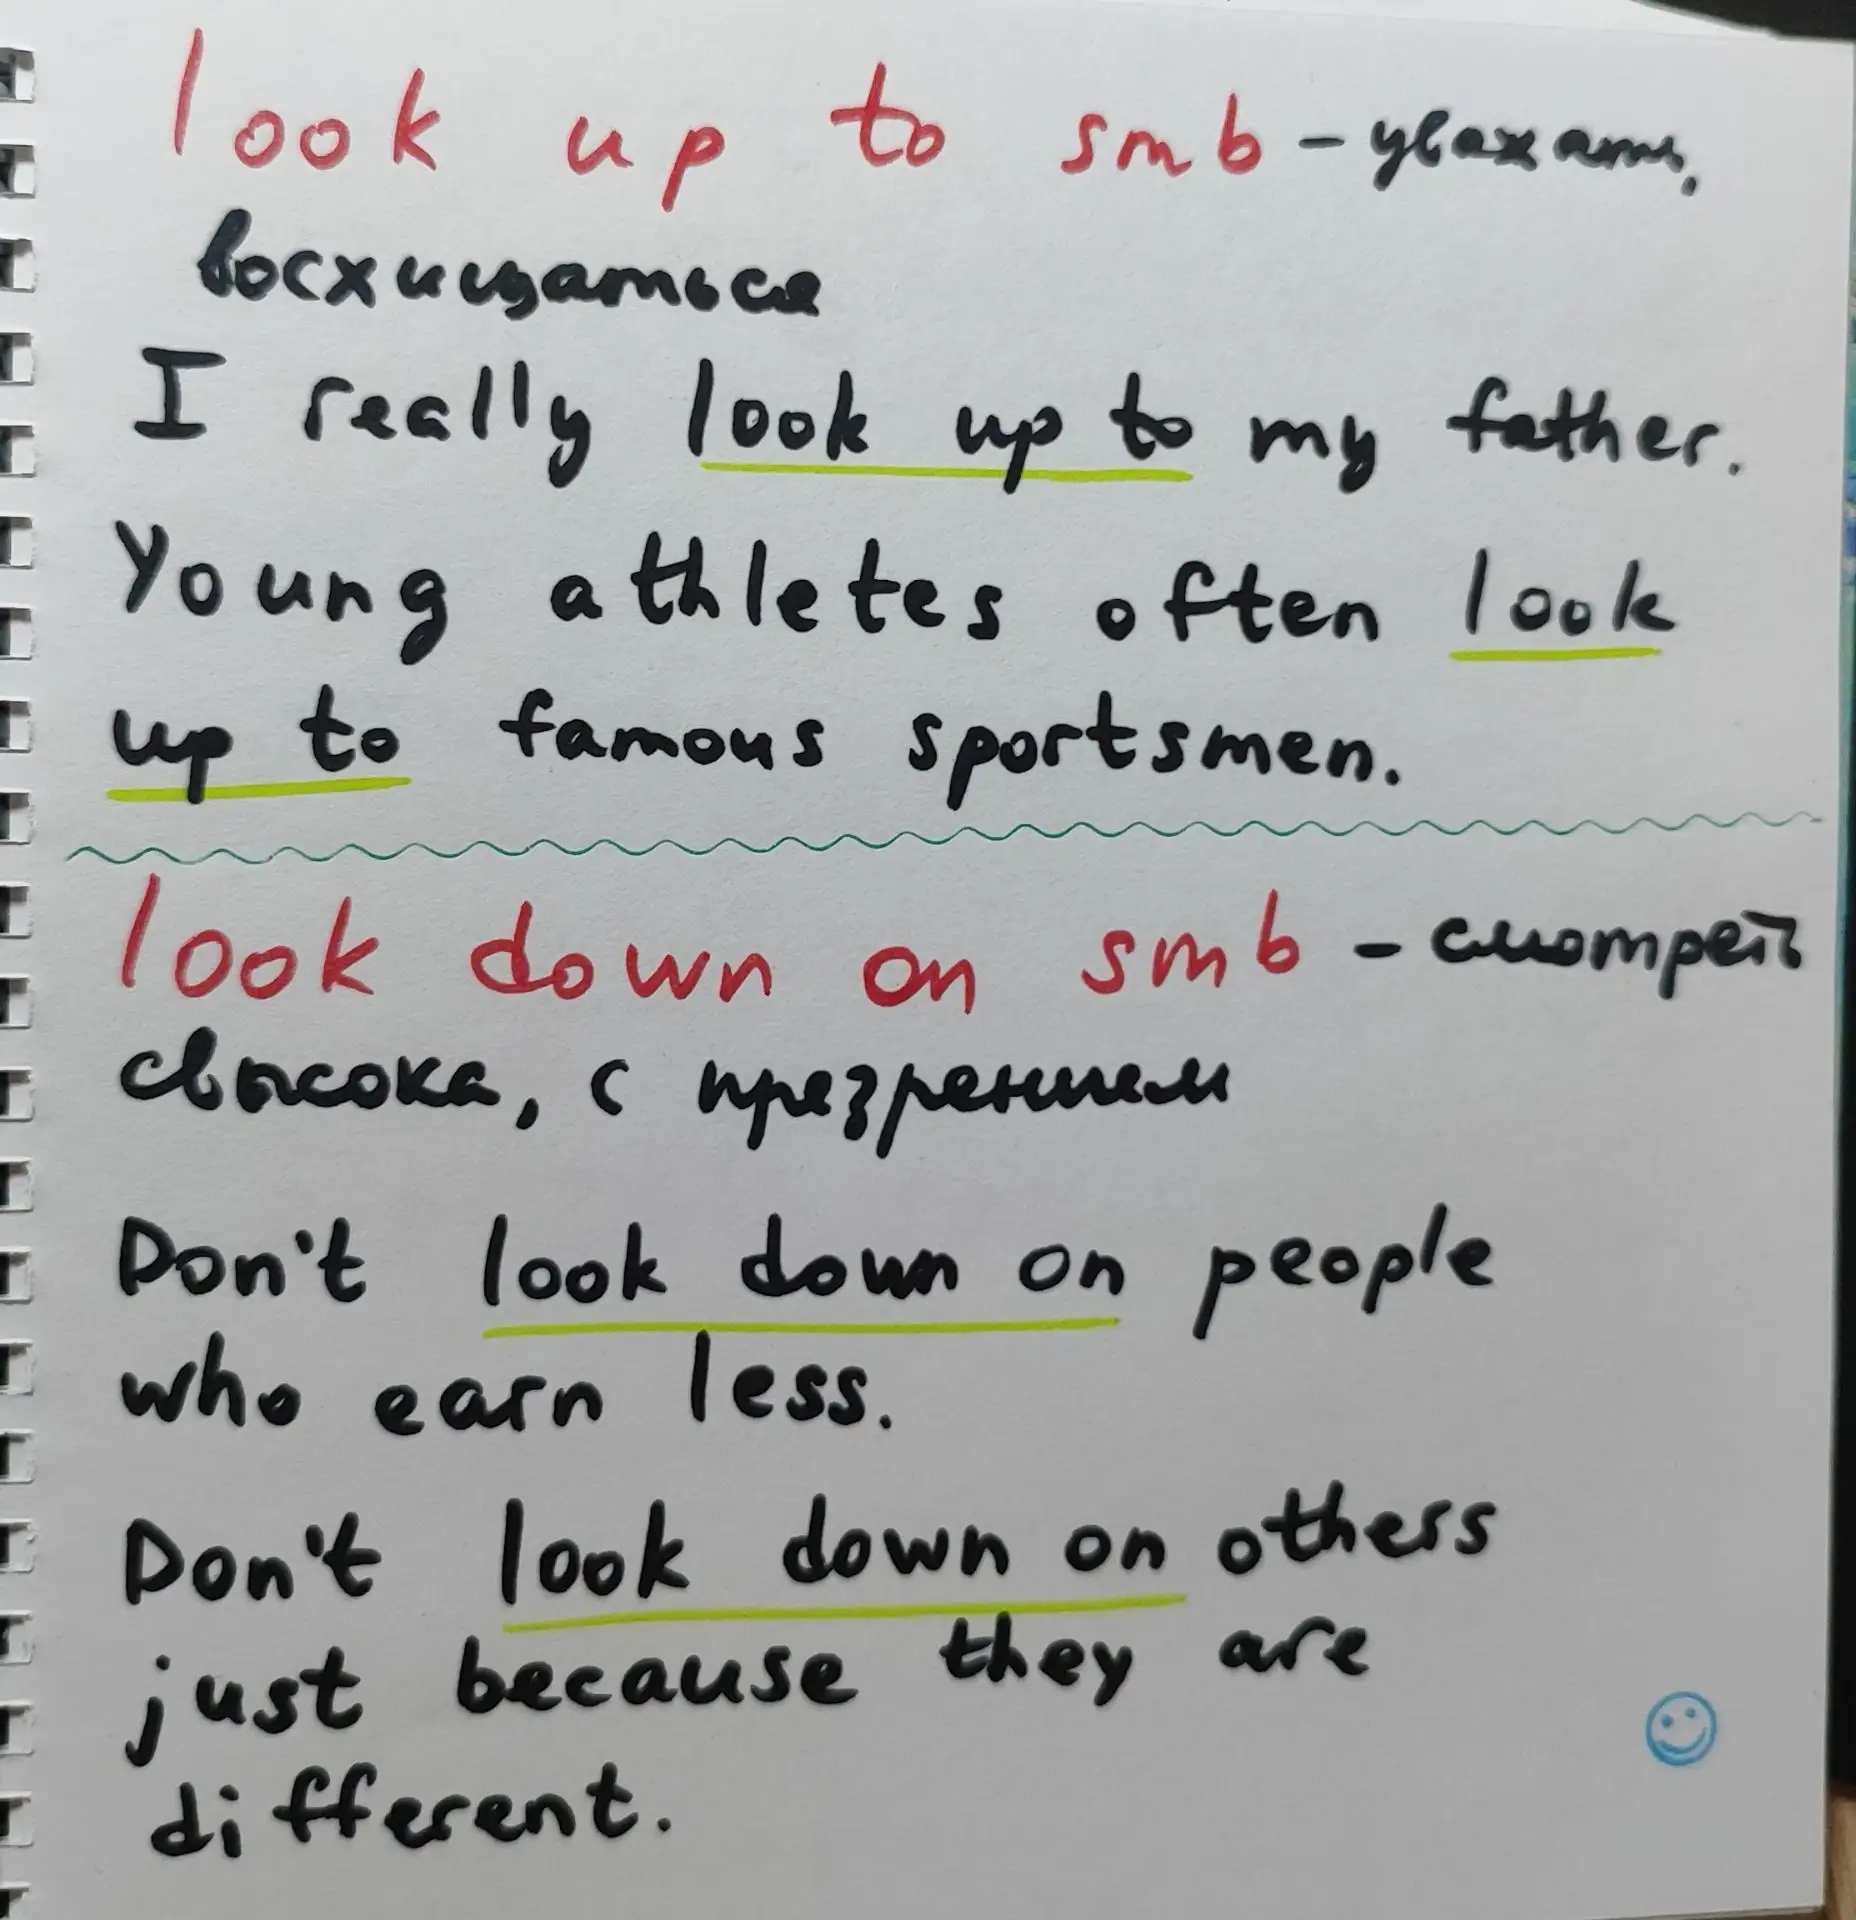 look up to smb - уважать,
восхищаться
I really look up to my father.
Young athletes often look
up to famous sportsmen.
look down on smb - смотреть
свысока, с презрением
Don't look down on people
who earn less.
Don't look down on others
just because they are
different.